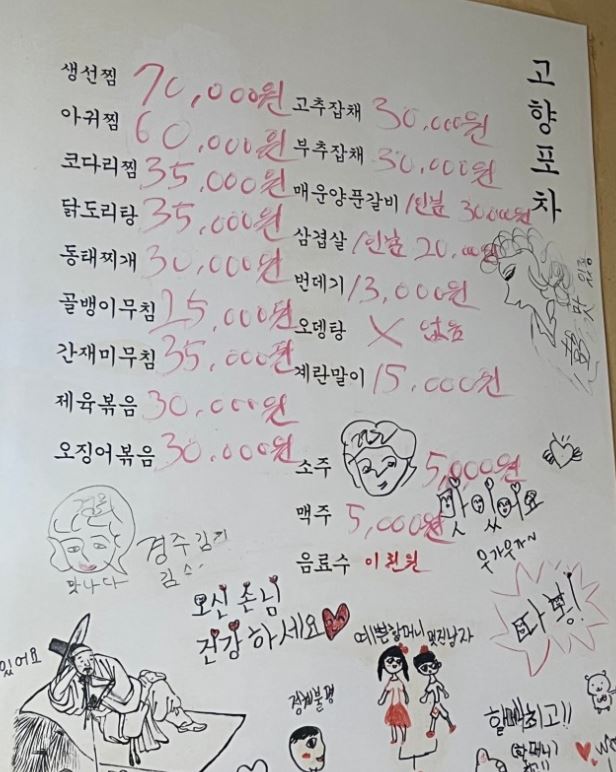 고향포차
생선찜 70,000원
아귀찜 60,000원
코다리찜 35,000원
닭도리탕 35,000원
동태찌개 30,000원
골뱅이무침 25,000원
간재미무침 35,000원
제육볶음 30,000원
오징어볶음 30,000원
고추잡채 30,000원
부추잡채 30,000원
매운양푼갈비 1인분 30000원
삼겹살 1인분 20,000원
번데기 13,000원
오뎅탕 X 없음
계란말이 15,000원
소주 5,000원
맥주 5,000원
음료수 이천원
맛있어요
우가우가~
맛나다
경주김가
오신 손님
건강하세요
있어요
예쁜할머니 멋진남자
따봉!
할빠히고!!
(할머니